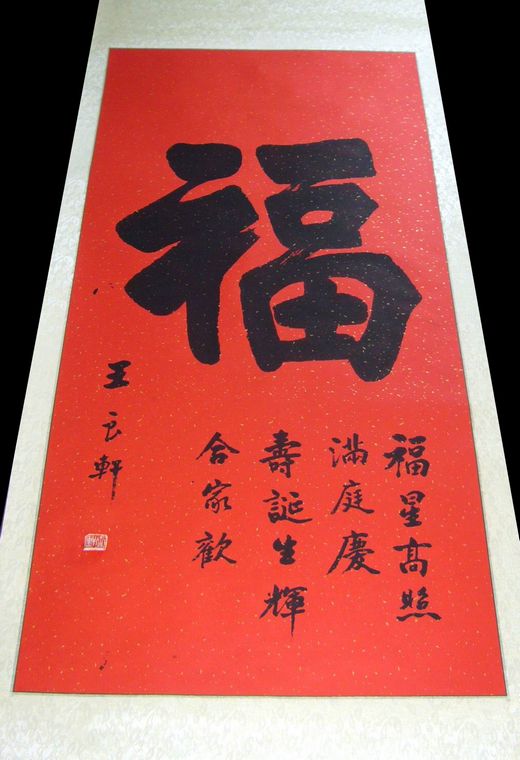 福
福星高照
滿庭慶
壽誕生輝
合家歡
王良軒